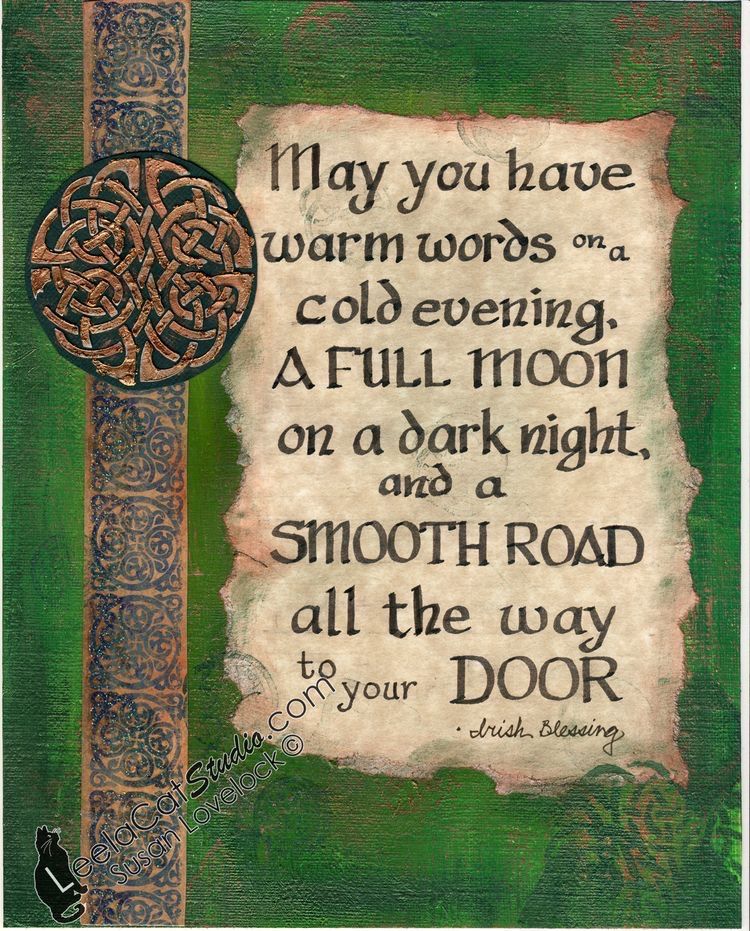 May you have
warm words on a
cold evening,
A FULL MOON
on a dark night,
and a
SMOOTH ROAD
all the way
to your DOOR
· Irish Blessing
LeelaCatStudio.com
Susan Lovelock ©